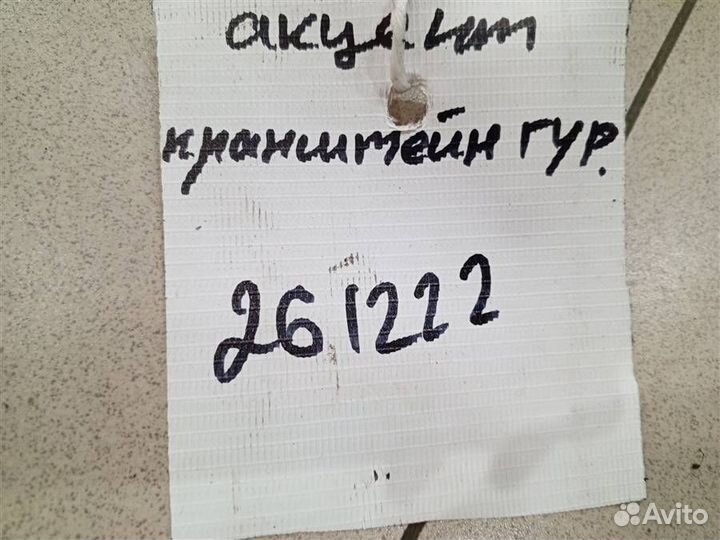 акцент
кранштейн гур.
261222
Avito